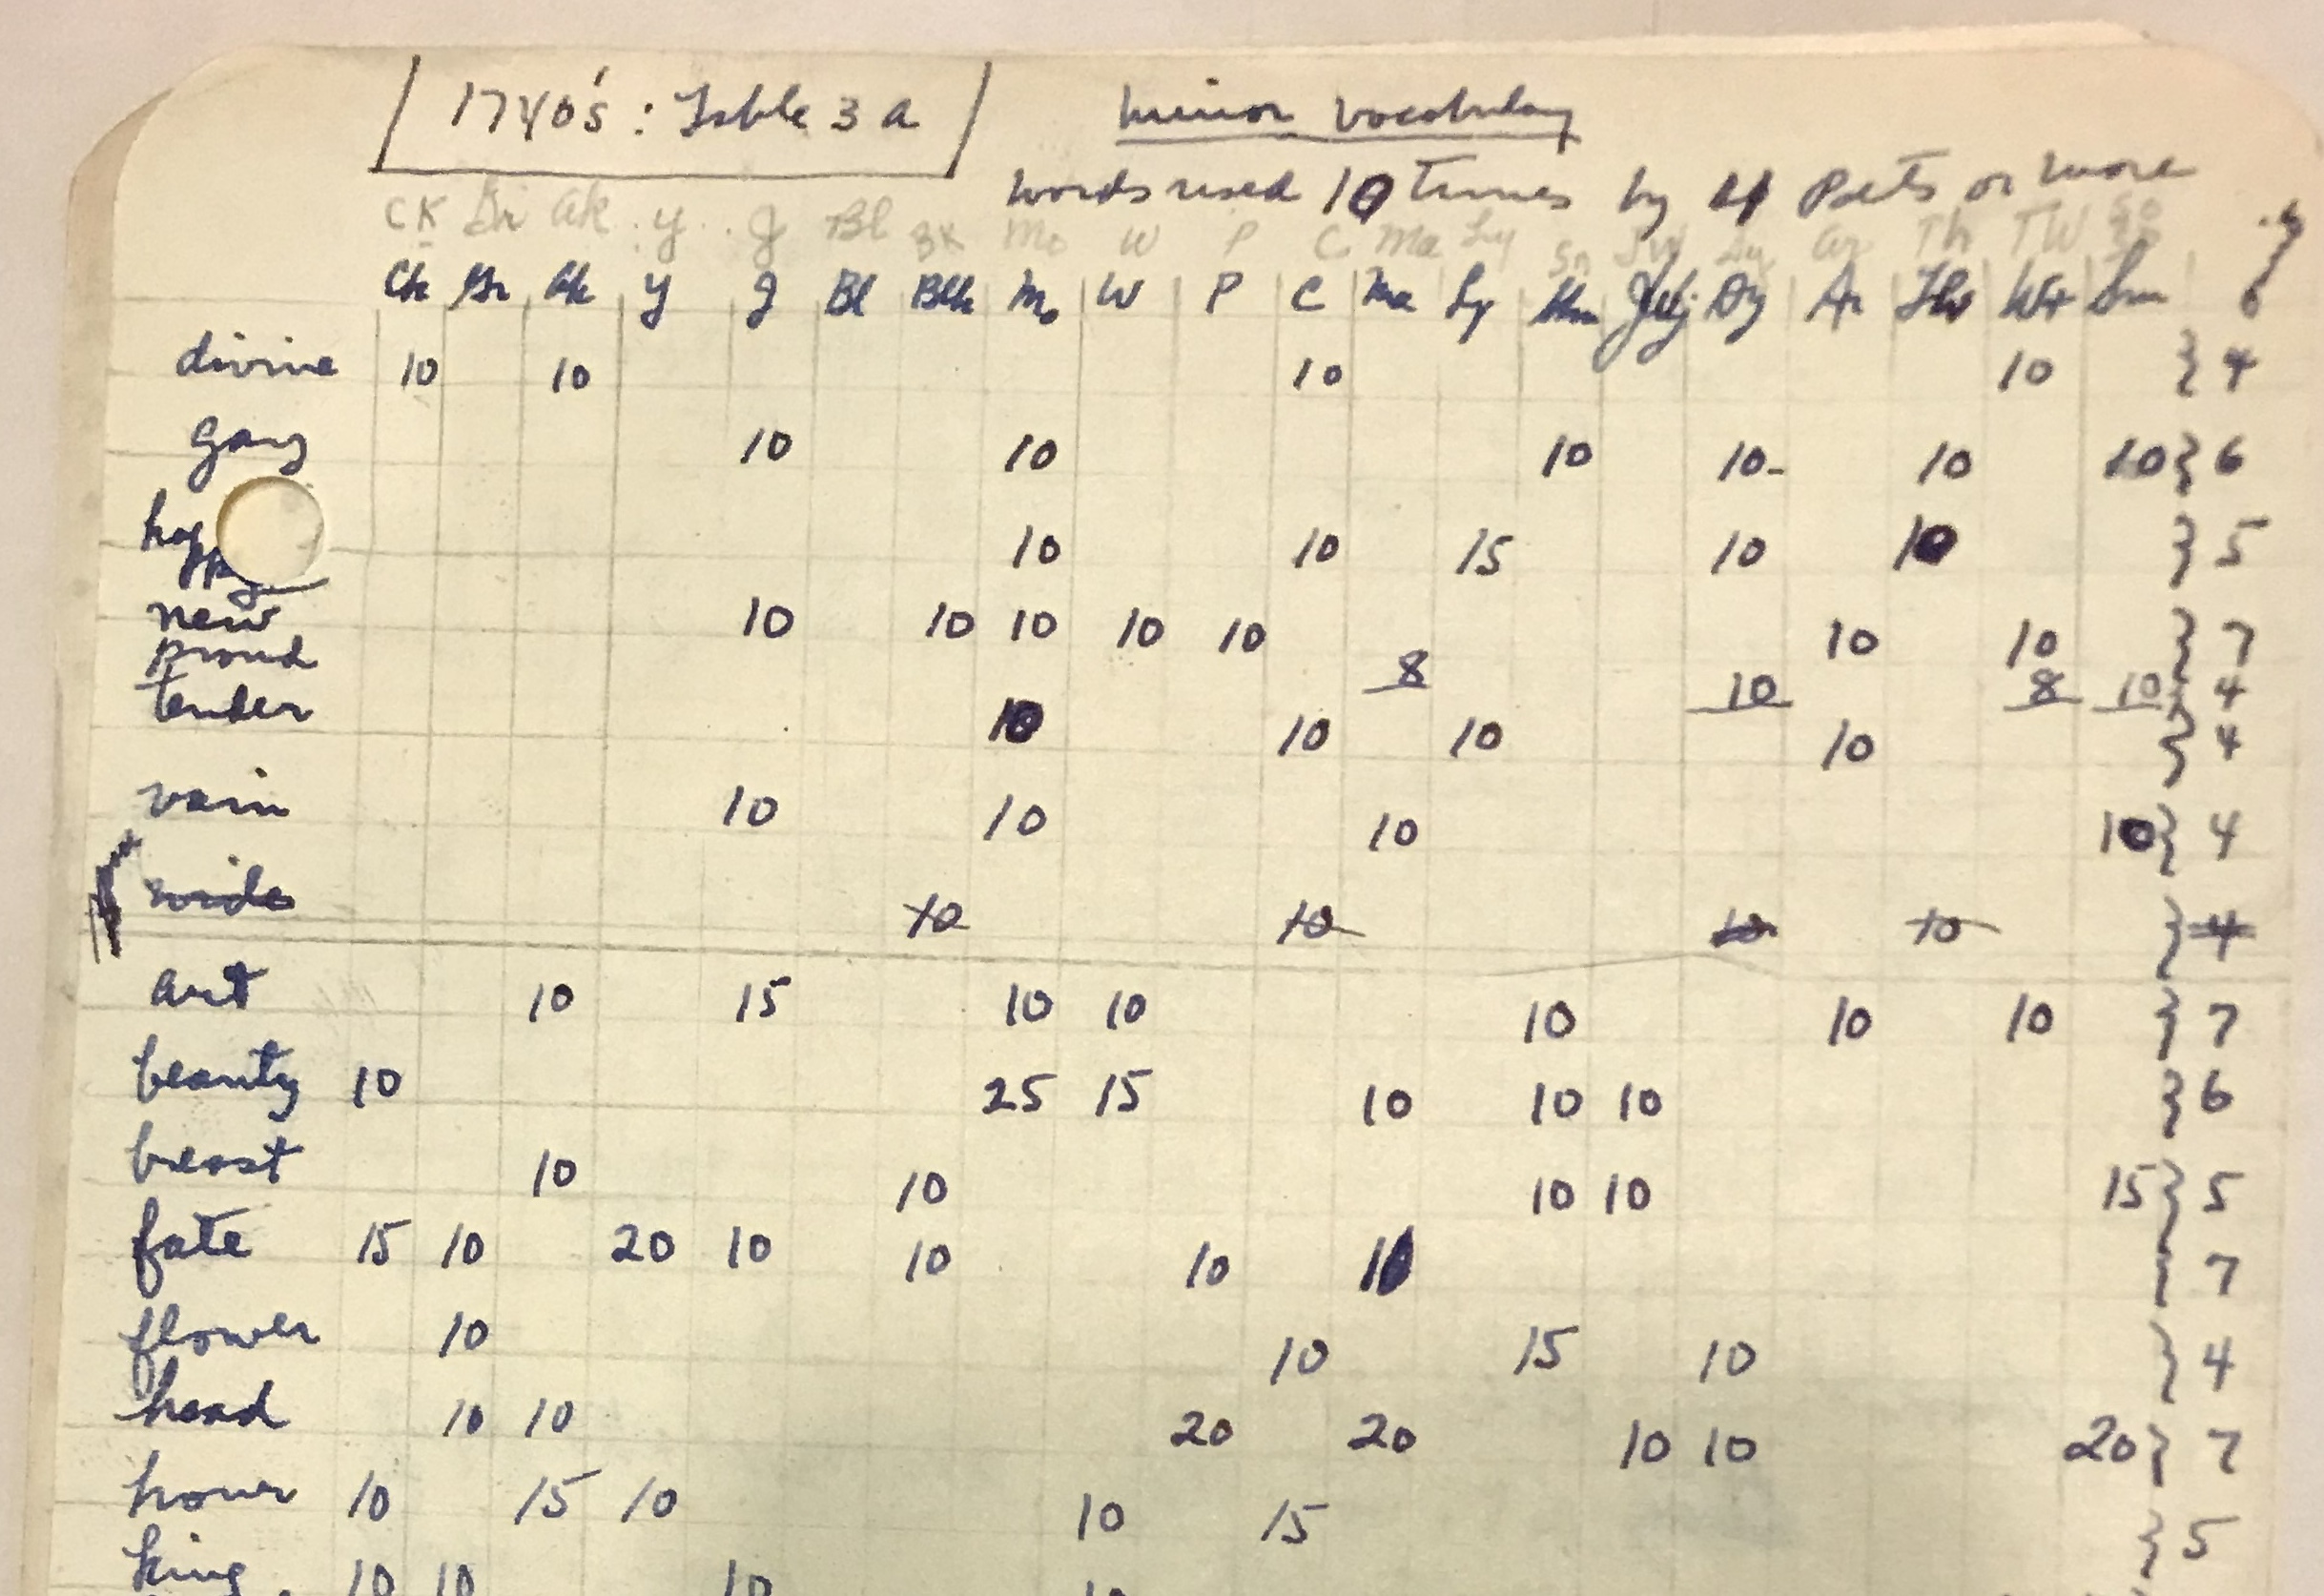 1740's : Table 3a
Minor Vocabulary
Words used 10 times by 4 Poets or more
CK Gr Ak y g Bl BK Mo W P C Ma Ly Sn Dy Ar Th TW So
Ch Gr Ak Y G Bl Blk Mo W P C Ma Ly Shn Dy Ar Th Wt Sm
divine 10 10 10 10 } 4
gay 10 10 10 10 10 10 } 6
happy 10 10 15 10 10 } 5
new 10 10 10 10 10 10 10 } 7
proud 8 10 8 10 } 4
tender 10 10 10 10 } 4
vain 10 10 10 10 } 4
wide 10 10 10 10 } 4
art 10 15 10 10 10 10 10 } 7
beauty 10 25 15 10 10 10 } 6
breast 10 10 10 10 15 } 5
fate 15 10 20 10 10 10 10 } 7
flower 10 10 15 10 } 4
head 10 10 20 20 10 10 20 } 7
hour 10 15 10 10 15 } 5
king 10 10 10 10